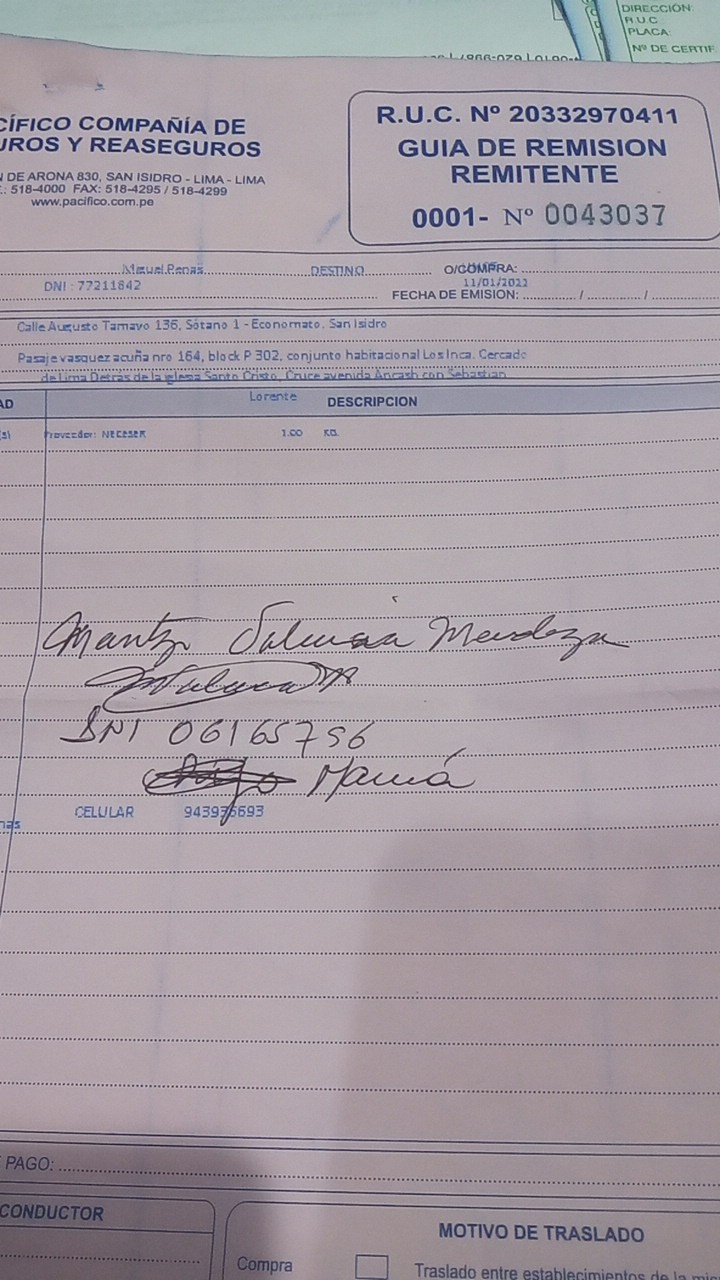 DIRECCIÓN:
R.U.C.
PLACA:
Nº DE CERTIF
CÍFICO COMPAÑÍA DE
UROS Y REASEGUROS
N DE ARONA 830, SAN ISIDRO - LIMA - LIMA
.: 518-4000 FAX: 518-4295 / 518-4299
www.pacifico.com.pe
R.U.C. Nº 20332970411
GUIA DE REMISION
REMITENTE
0001- Nº 0043037
Miguel Penas DESTINO O/COMPRA:
DNI : 77211642 11/01/2022
FECHA DE EMISION: / /
Calle Augusto Tamayo 136, Sótano 1 - Economato. San Isidro
Pasaje vasquez acuña nro 164, block P 302, conjunto habitacional Los Inca. Cercado
de Lima Detrás de la iglesia Santo Cristo. Cruce avenida Ancash con Sebastian
Lorente
AD DESCRIPCION
(s) Proveedor: NECESER 1.00 KG.
Mendoza
DNI 06165756
Mamá
nas CELULAR 943936693
PAGO:
CONDUCTOR
MOTIVO DE TRASLADO
Compra Traslado entre establecimientos de la mi